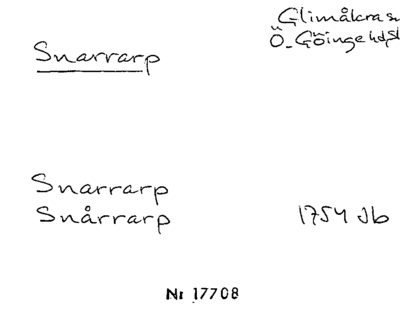 Glimåkra sn
Ö. Göinge hd
Snarrarp
Snarrarp
Snårrarp 1754 Jb
Nr 17708